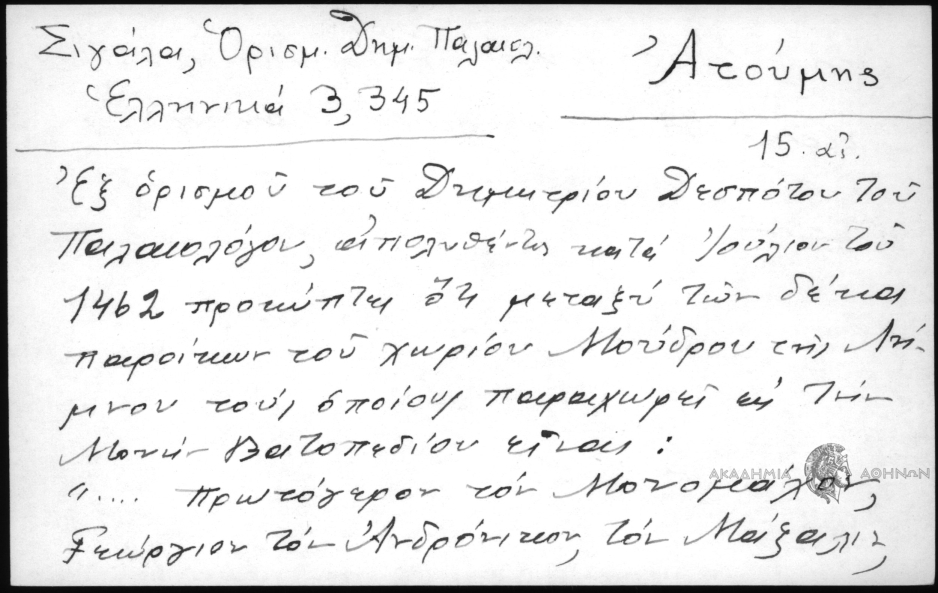 Σιγάλα, Ὁρισμ. Δημ. Παλαιολ.
Ἑλληνικά 3, 345
Ἀτούμης
15. αἰ.
Ἐξ ὁρισμοῦ τοῦ Δημητρίου Δεσπότου τοῦ
Παλαιολόγου, ἀπολυθέντος κατά Ἰούλιον τοῦ
1462 προκύπτει ὅτι μεταξύ τῶν δέκα
παροίκων τοῦ χωρίου Μούδρου τῆς Λή-
μνου τούς ὁποίους παραχωρεῖ εἰς τήν
Μονήν Βατοπεδίου εἶναι:
".... πρωτόγερον τόν Μονομάχον,
Γεώργιον τόν Ἀνδρόνικον, τόν
ΑΚΑΔΗΜΙΑ ΑΘΗΝΩΝ